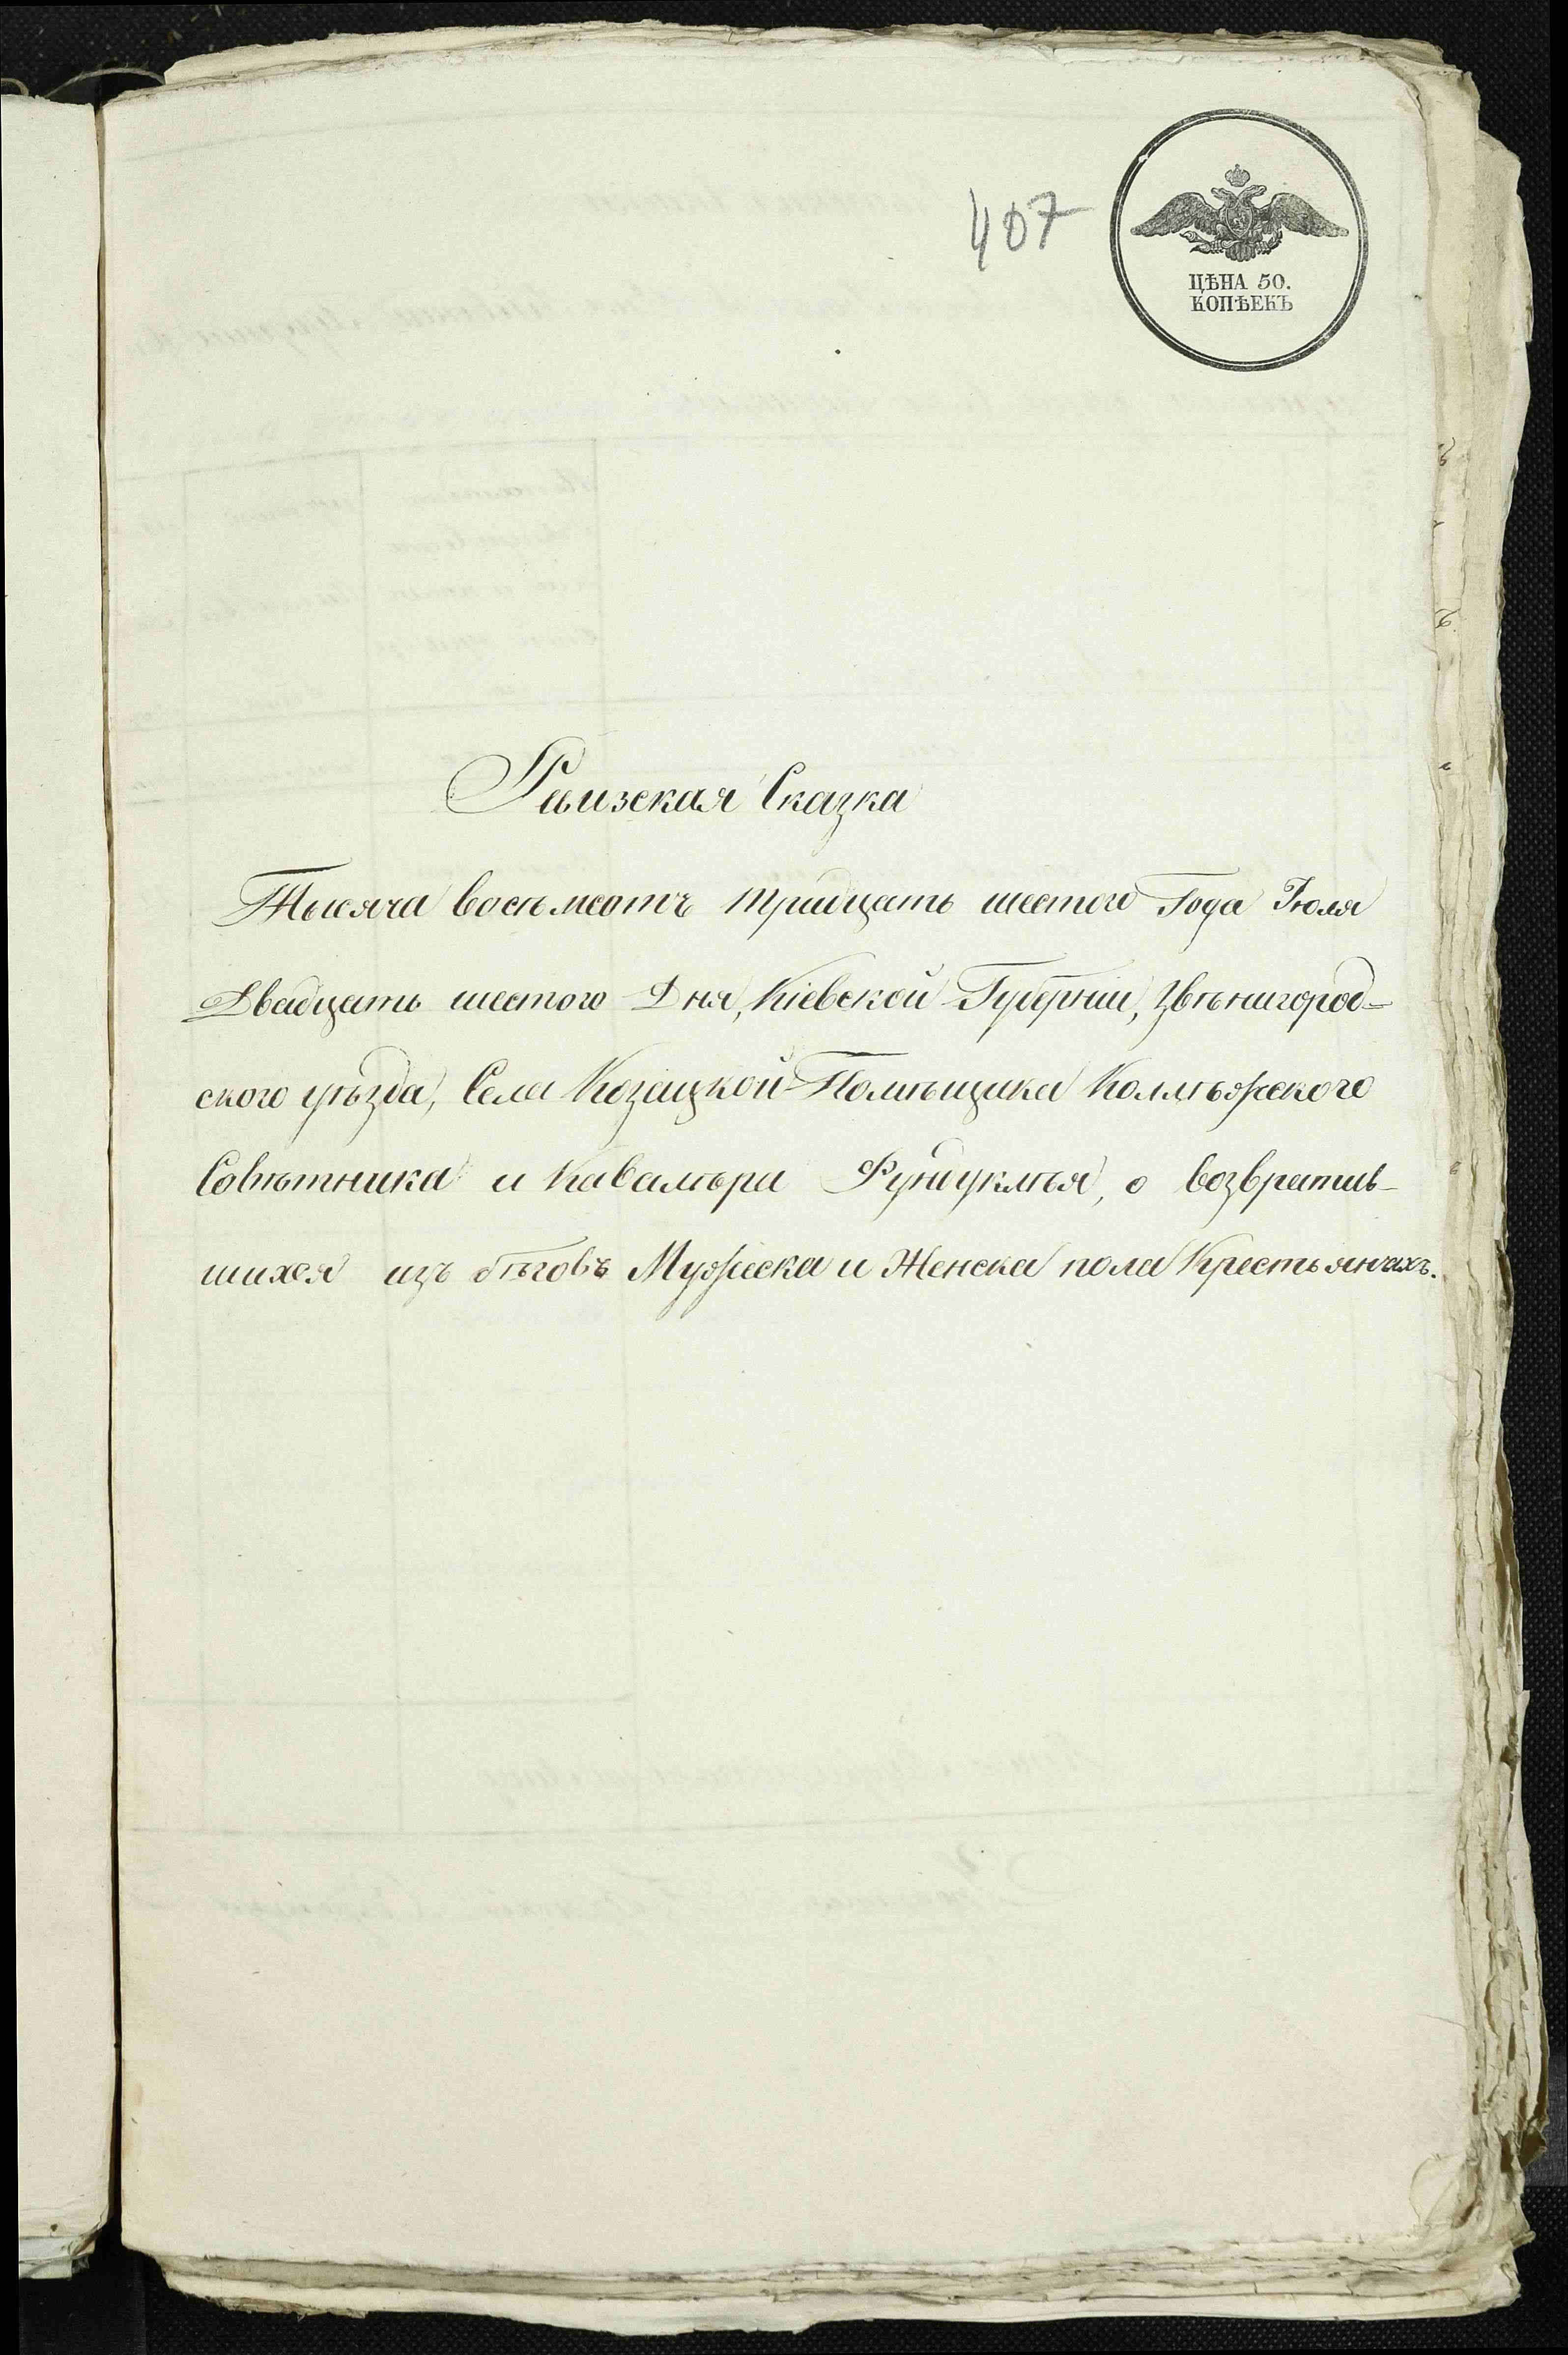 407
ЦѢНА 50.
КОПѢЕКЪ
Ревизская Сказка
Тысяча восѣмсотъ тридцать шестого Года Іюля
Двадцать шестого Дня, Кіевской Губерніи, Звѣнигород-
ского уѣзда, Села Козацкой Помѣщика Коллѣжского
Совѣтника и Кавалѣра Фундуклѣя, о возвратив-
шихся изъ бѣговъ Мужеска и Женска пола Крестьянахъ.